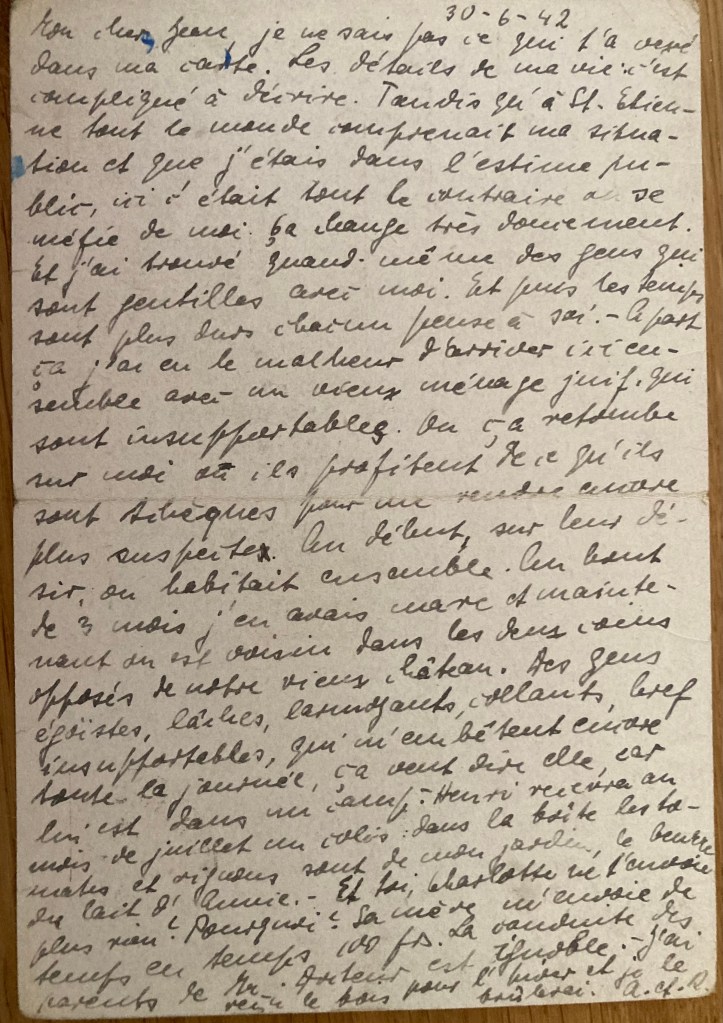 30-6-42
Mon cher Jean, je ne sais pas ce qui t'a vexé
dans ma carte. Les détails de ma vie c'est
compliqué à décrire. Tandis qu'à St. Etien-
ne tout le monde comprenait ma situa-
tion et que j'étais dans l'estime pu-
blic, ici c'était tout le contraire on se
méfie de moi. Ça change très doucement.
Et j'ai trouvé quand-même des gens qui
sont gentilles avec moi. Et puis les temps
sont plus durs chacun pense à soi.- A part
ça j'ai eu le malheur d'arriver ici en-
semble avec un vieux ménage juif. qui
sont insupportables. Ou ça retombe
sur moi où ils profitent de ce qu'ils
sont tchèques pour me rendre encore
plus suspecte. Au début, sur leur dé-
sir, on habitait ensemble. Au bout
de 3 mois j'en avais marre et mainte-
nant on est voisin dans les deux coins
opposés de notre vieux château. Des gens
égoïstes, lâches, larmoyants, collants, bref
insupportables, qui m'embêtent encore
toute la journée, ça veut dire elle, car
lui est dans un camp.- Henri recevra au
mois de juillet un colis: dans la boîte les to-
mates et oignons sont de mon jardin, le beurre
du lait d'Annie.- Et toi, Charlotte ne t'envoie
plus rien? Pourquoi? Sa mère m'envoie de
temps en temps 100 frs. La conduite des
parents de Mr. est ignoble.- J'ai
reçu le bois pour l'hiver et je le
brûlerai. A. et R.